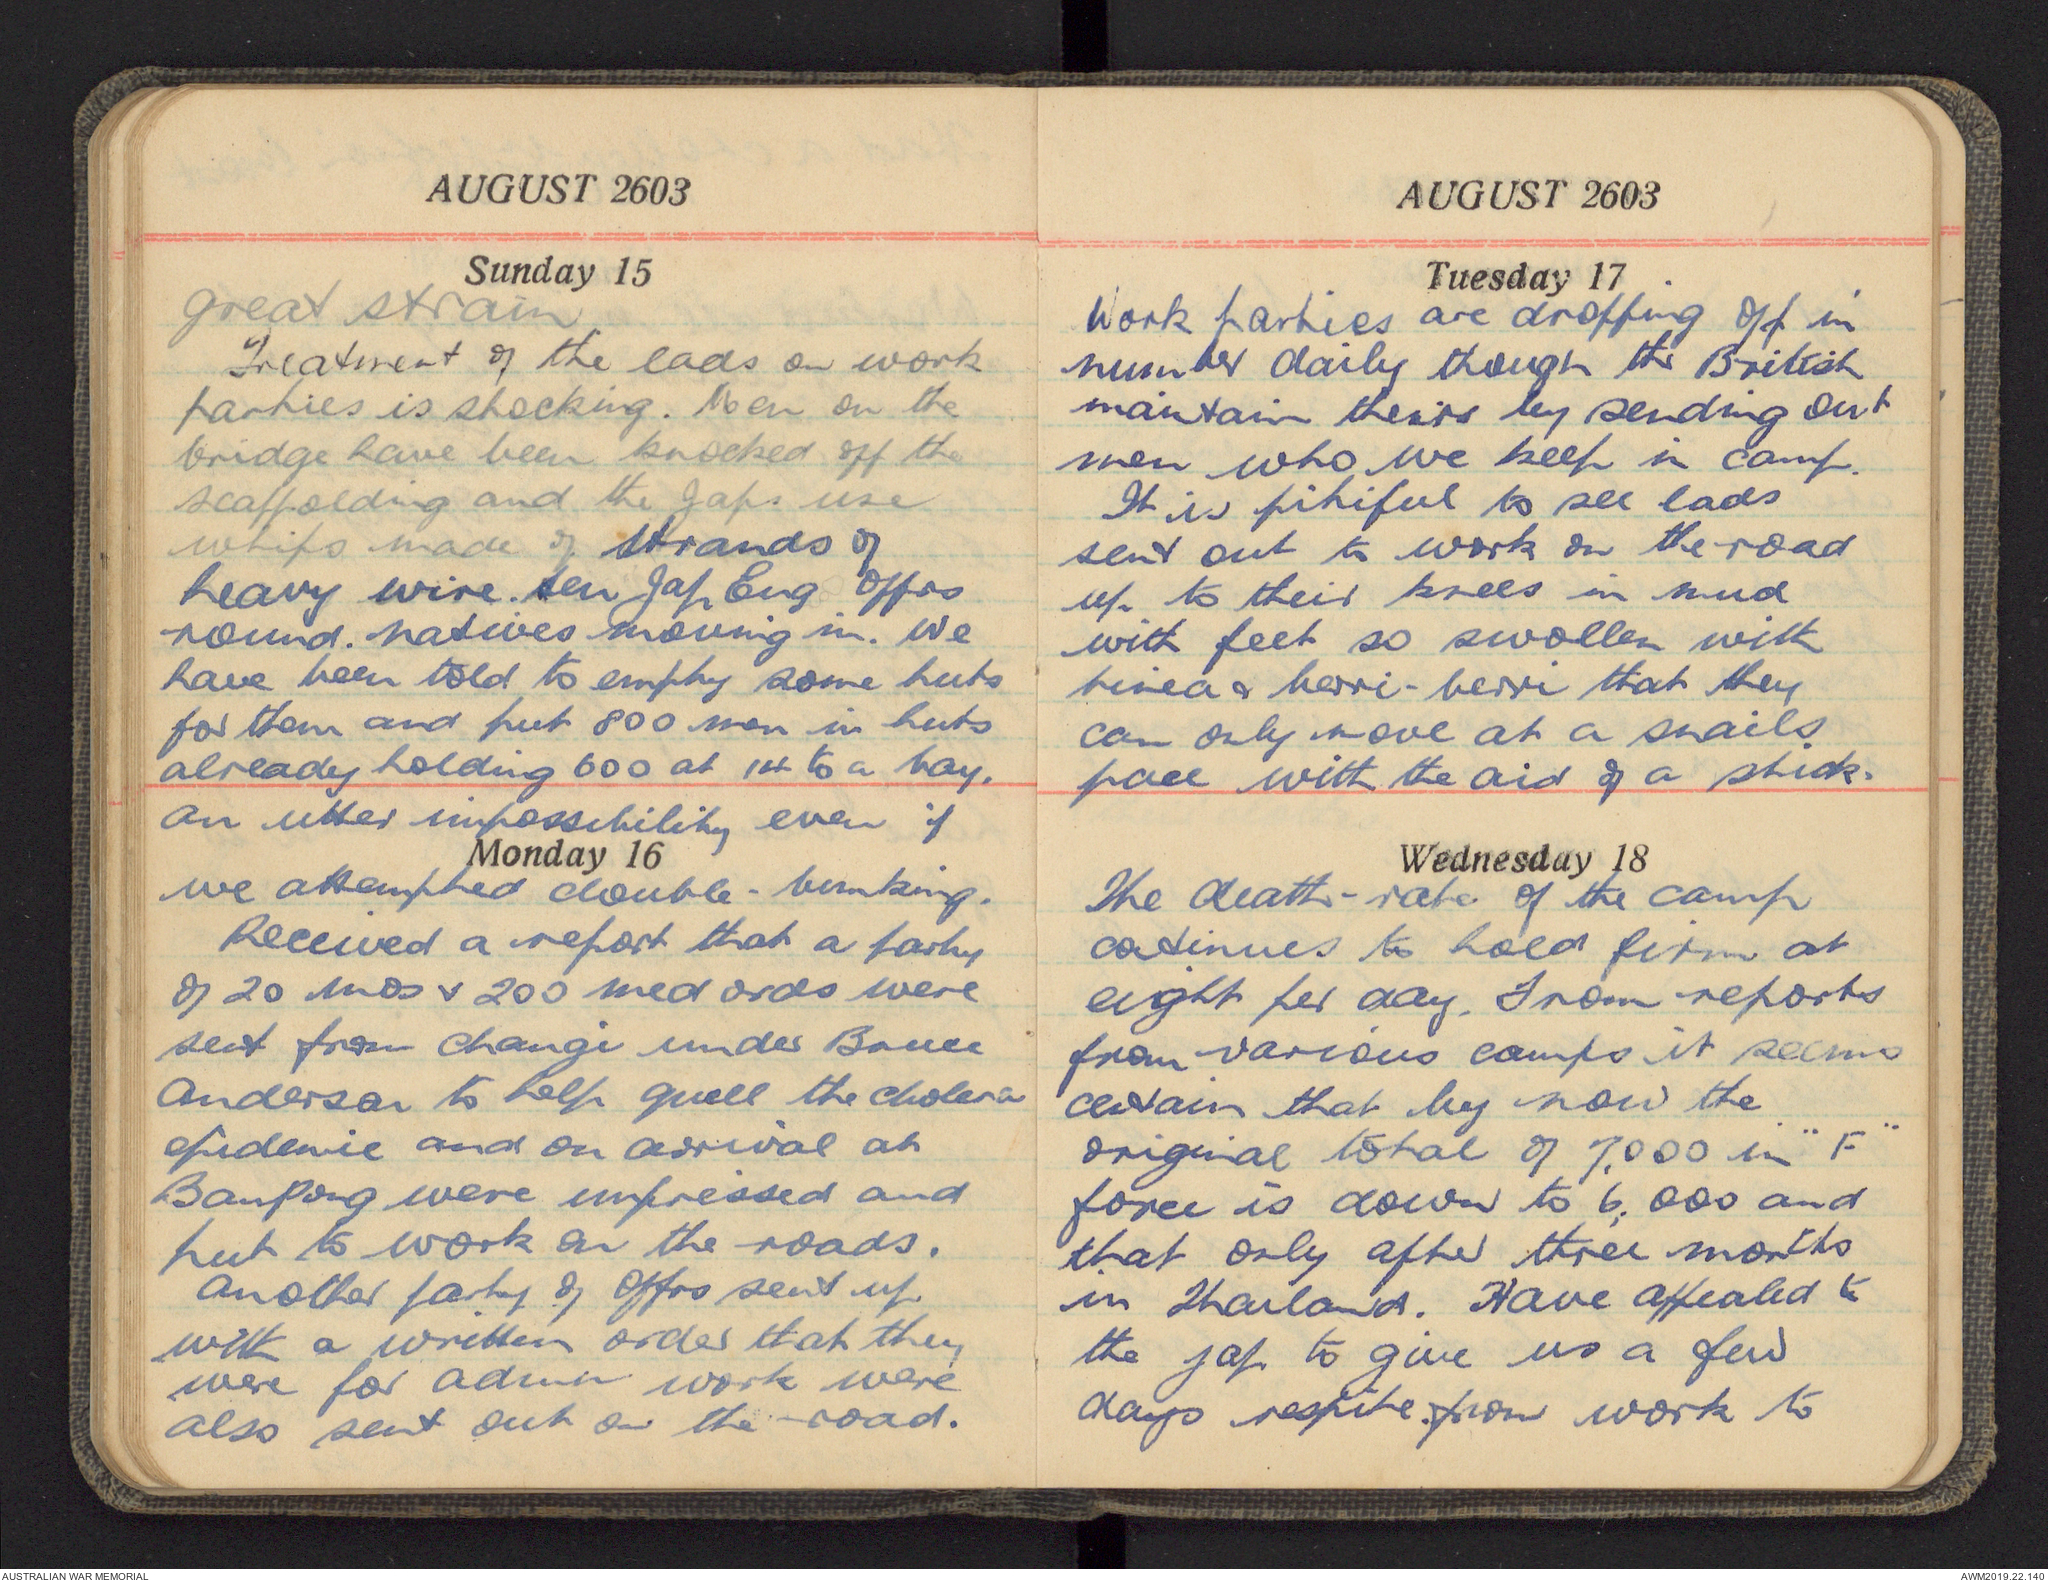 AUGUST 2603
Sunday 15
great strain
Treatment of the lads on work
parties is shocking. Men on the
bridge have been knocked off the
scaffolding and the Japs use
whips made of strands of
heavy wire. ten Jap Eng Offrs
round. natives moving in. We
have been told to empty some huts
for them and put 800 men in huts
already holding 600 at 14 to a bay.
An utter impossibility even if
Monday 16
we attempted double-bunking.
Received a report that a party
of 20 mos & 200 med ords were
sent from Changi under Bruce
Anderson to help quell the cholera
epidemic and on arrival at
BanPong were impressed and
put to work on the roads.
Another party of Offrs sent up
with a written order that they
were for admin work were
also sent out on the road.
AUGUST 2603
Tuesday 17
Work parties are dropping off in
number daily though the British
maintain theirs by sending out
men who we keep in camp.
It is pitiful to see lads
sent out to work on the road
up to their knees in mud
with feet so swollen with
tinea & berri-berri that they
can only move at a snails
pace with the aid of a stick.
Wednesday 18
The death-rate of the camp
continues to hold firm at
eight per day. From reports
from various camps it seems
certain that by now the
original total of 7,000 in "F"
force is down to 6,000 and
that only after three months
in Thailand. Have appealed to
the Jap to give us a few
days respite from work to
AUSTRALIAN WAR MEMORIAL
AWM2019.22.140